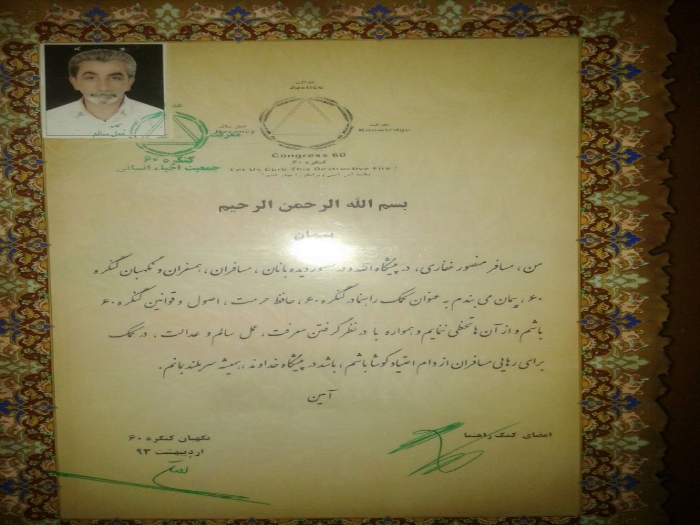 عدالت
Justice
معرفت
Knowledge
عمل سالم
معرفت
کنگره ۶۰
جمعیت احیاء انسانی
Congress 60
کنگره ۶۰
Let Us Curb This Destructive Fire!
بسم الله الرحمن الرحیم
پیمان
من ، مسافر منصور غفاری، در پیشگاه الله و در حضور دیده‌بانان ، مسافران ، همسفران و نگهبان کنگره
۶۰ ، پیمان می بندم به عنوان کمک راهنما در کنگره ۶۰، حافظ حرمت ، اصول و قوانین کنگره ۶۰
باشم و از آن ها تخطی ننمایم و همواره با در نظر گرفتن معرفت، عمل سالم و عدالت ، در کمک
برای رهایی مسافران از دام اعتیاد کوشا باشم ، باشد در پیشگاه خداوند ، همیشه سربلند بمانم .
آمین
امضای کمک راهنما
نگهبان کنگره ۶۰
اردیبهشت ۹۳